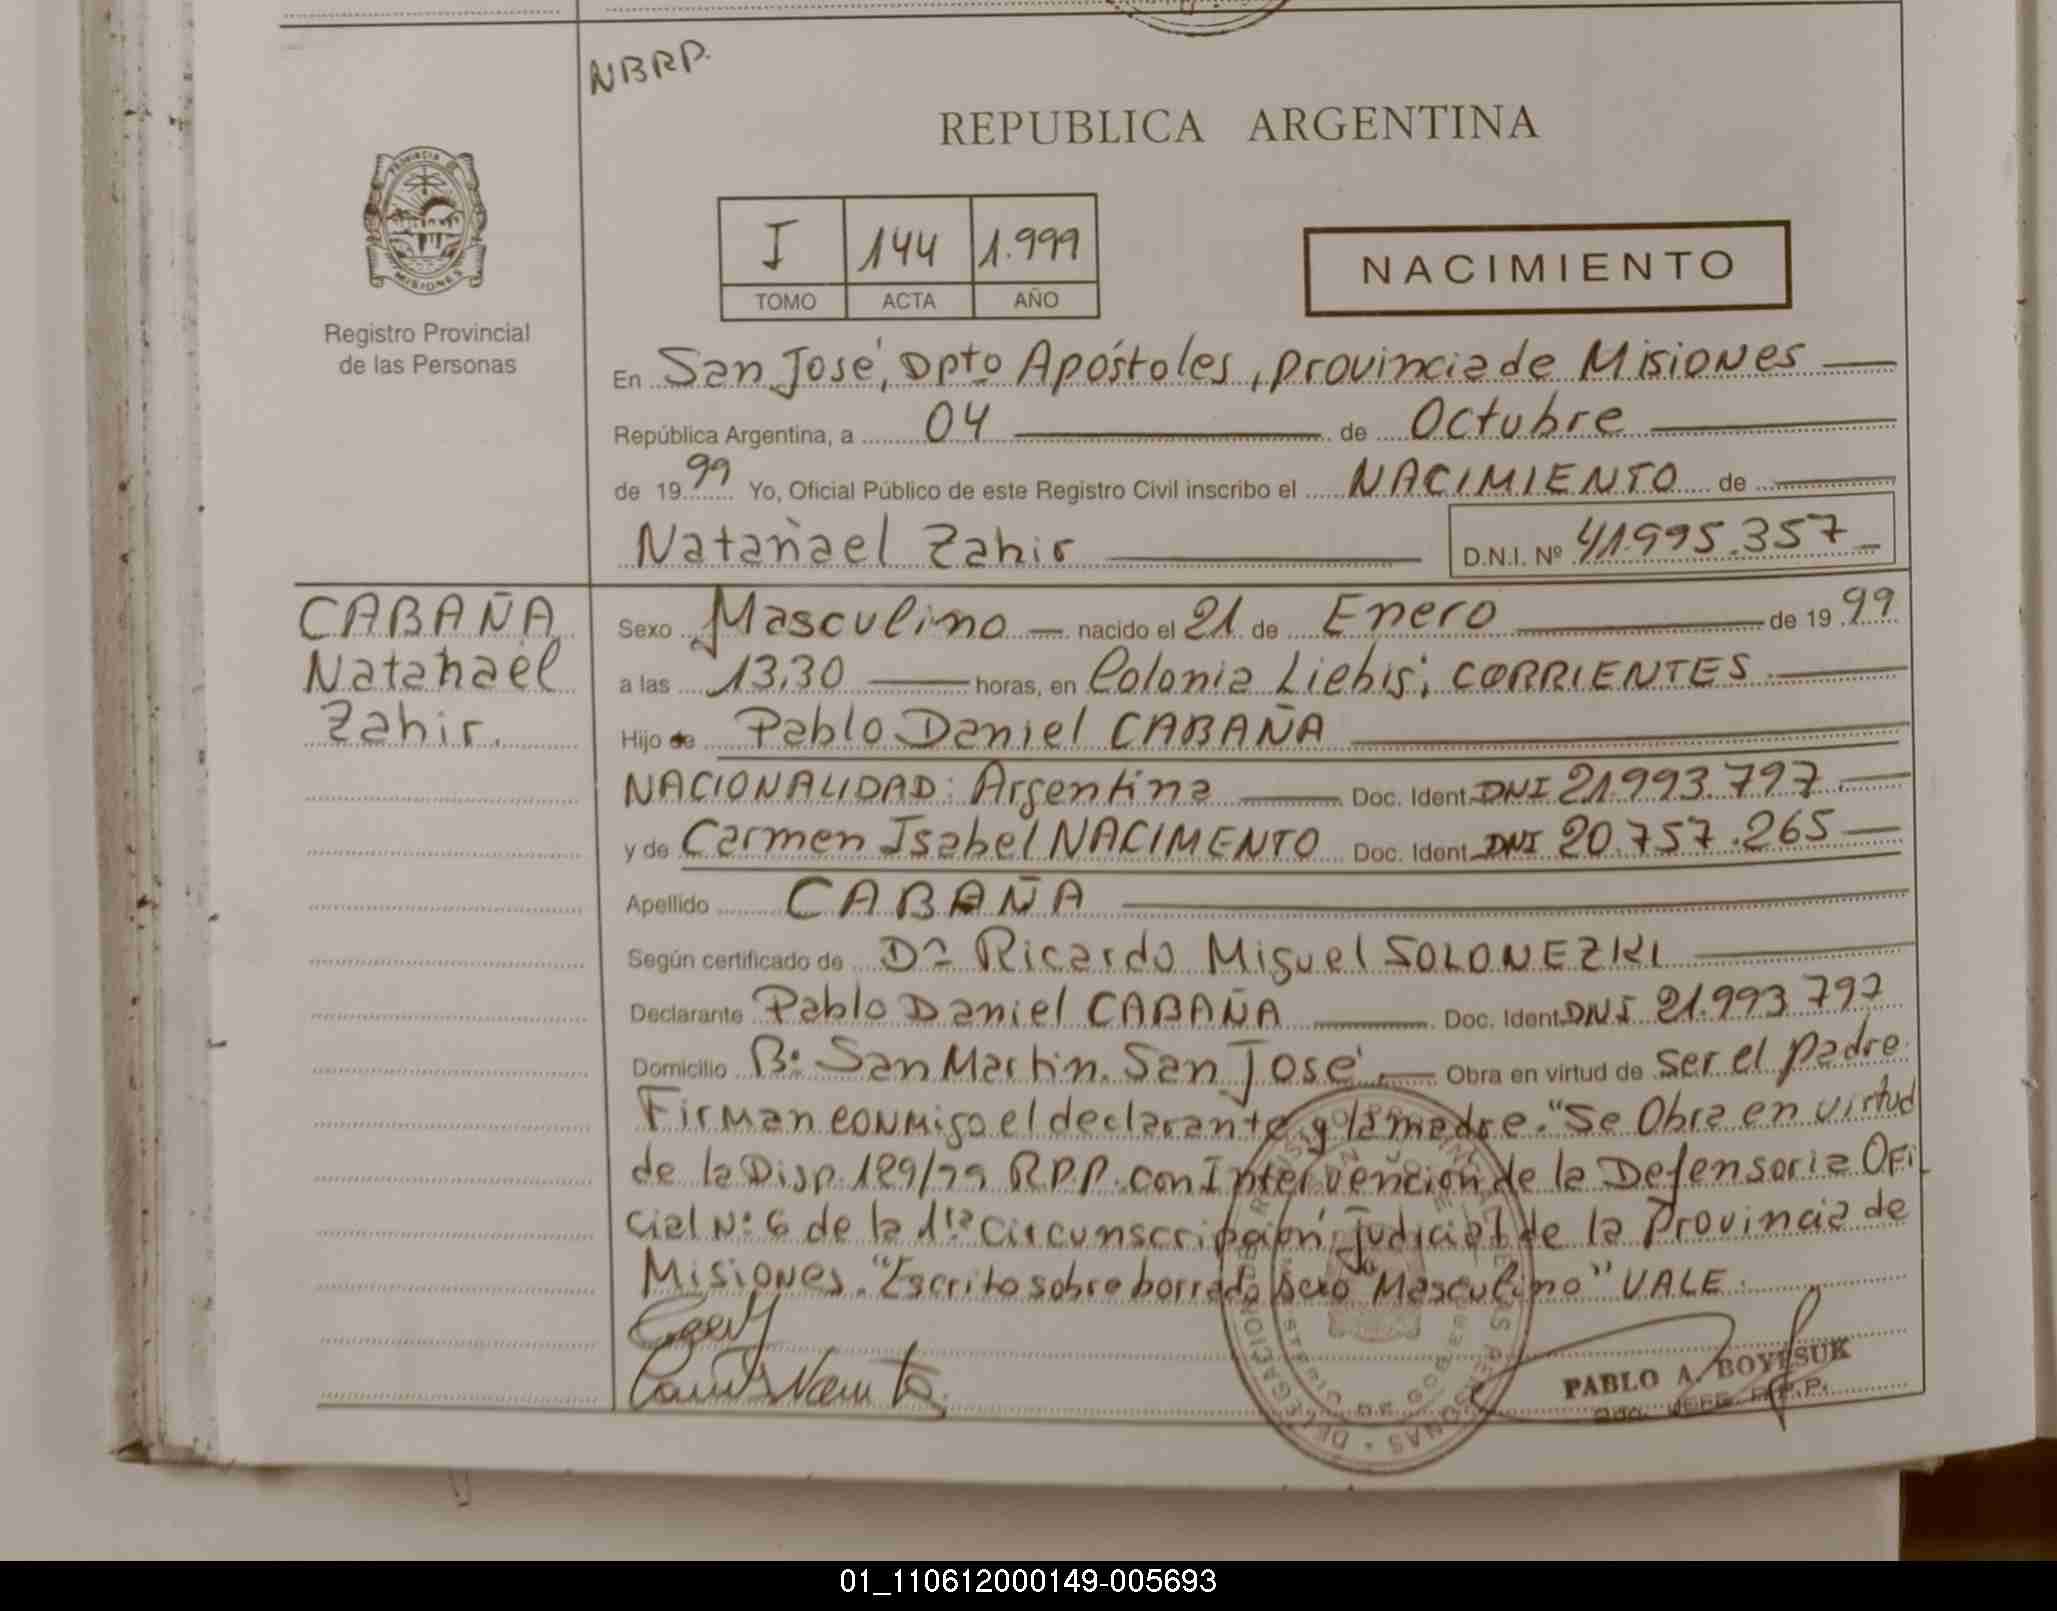 NBRP.
REPUBLICA ARGENTINA
PROVINCIA DE MISIONES
Registro Provincial
de las Personas
I 144 1.999
TOMO ACTA AÑO
NACIMIENTO
En San José, Dpto Apóstoles, provincia de Misiones
República Argentina, a 04 de Octubre
de 1999 Yo, Oficial Público de este Registro Civil inscribo el NACIMIENTO de
Natañael Zahir D.N.I. Nº 41.995.357
CABAÑA
Natanael
Zahir.
Sexo Masculino nacido el 21 de Enero de 1999
a las 13,30 horas, en Colonia Liebis; CORRIENTES
Hijo de Pablo Daniel CABAÑA
NACIONALIDAD: Argentina Doc. Ident. DNI 21.993.797
y de Carmen Isabel NACIMENTO Doc. Ident. DNI 20.757.265
Apellido CABAÑA
Según certificado de Dr Ricardo Miguel SOLONEZKI
Declarante Pablo Daniel CABAÑA Doc. Ident. DNI 21.993.797
Domicilio B: San Martin. San José Obra en virtud de ser el padre
Firman conmigo el declarante y la madre. "Se Obra en virtud
de la Disp. 189/79 RPP. con Intervención de la Defensoria Ofi
cial N: 6 de la 1ra Circunscripción Judicial de la Provincia de
Misiones. "Escrito sobre borrado sexo "Masculino" VALE.
PABLO A. BOYESUK
R.P.P.
01_110612000149-005693